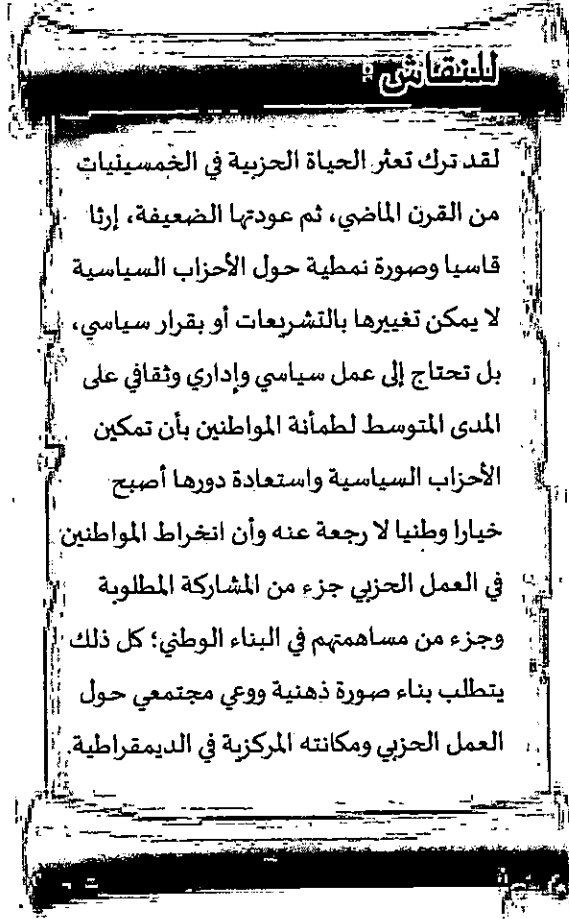 للنقاش
لقد ترك تعثر الحياة الحزبية في الخمسينيات
من القرن الماضي، ثم عودتها الضعيفة، إرثا
قاسيا وصورة نمطية حول الأحزاب السياسية
لا يمكن تغييرها بالتشريعات أو بقرار سياسي،
بل تحتاج إلى عمل سياسي وإداري وثقافي على
المدى المتوسط لطمأنة المواطنين بأن تمكين
الأحزاب السياسية واستعادة دورها أصبح
خيارا وطنيا لا رجعة عنه وأن انخراط المواطنين
في العمل الحزبي جزء من المشاركة المطلوبة
وجزء من مساهمتهم في البناء الوطني؛ كل ذلك
يتطلب بناء صورة ذهنية ووعي مجتمعي حول
العمل الحزبي ومكانته المركزية في الديمقراطية.